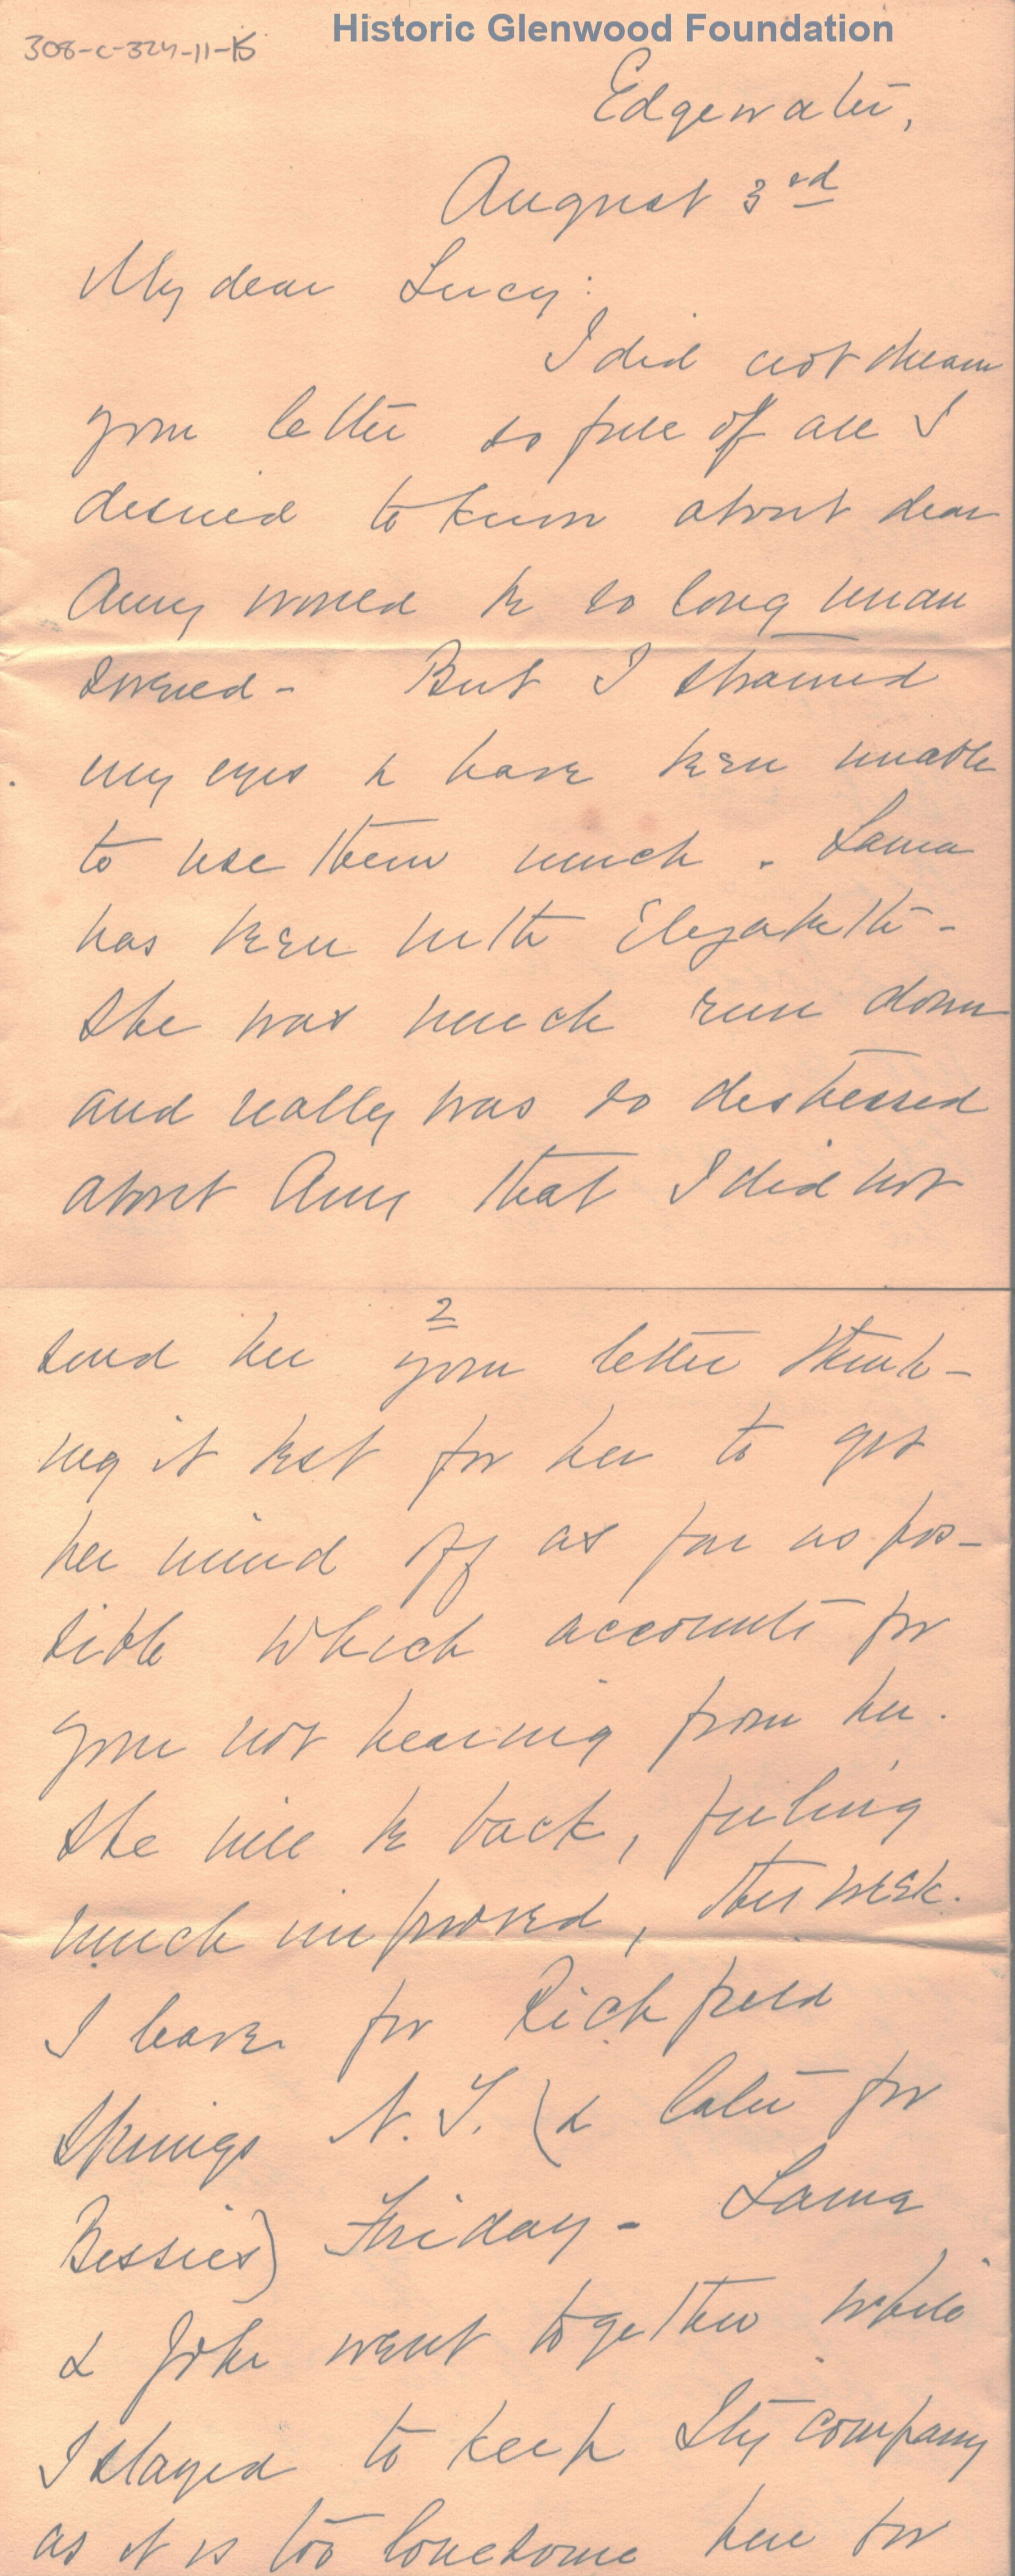 Historic Glenwood Foundation
308-C-324-11-15
Edgewater,
August 3rd
My dear Lucy:
I did not dream
your letter so full of all I
desired to know about dear
Amy would be so long unan
swered - But I strained
my eyes & have been unable
to use them much. Laura
has been with Elizabeth -
She was much run down
and really was so distressed
about Amy that I did not
2
send her your letter think-
ing it best for her to get
her mind off as far as pos-
sible which accounts for
your not hearing from her.
She will be back, feeling
much improved, this week.
I leave for Richfield
Springs N.Y. (& later for
Bessies) Friday - Laura
& John went together while
I stayed to keep company
as it is too lonesome here for